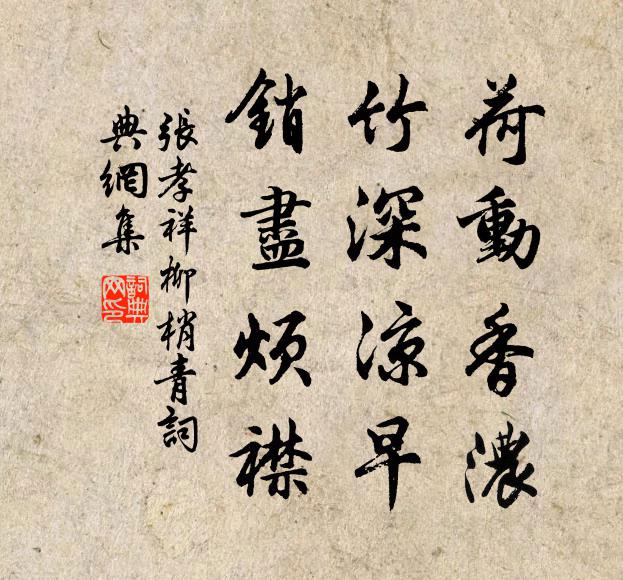 荷動香濃
竹深涼早
銷盡煩襟
張孝祥柳梢青詞
典網集
詞典網印